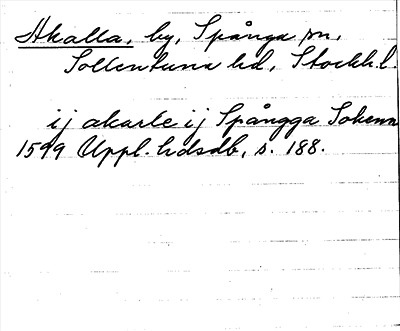 Akalla, by, Spånga sn,
Sollentuna hd, Stockh.l.
ij akarle ij Spångga Sokenn
1599 Uppl. hdsdb, s. 188.